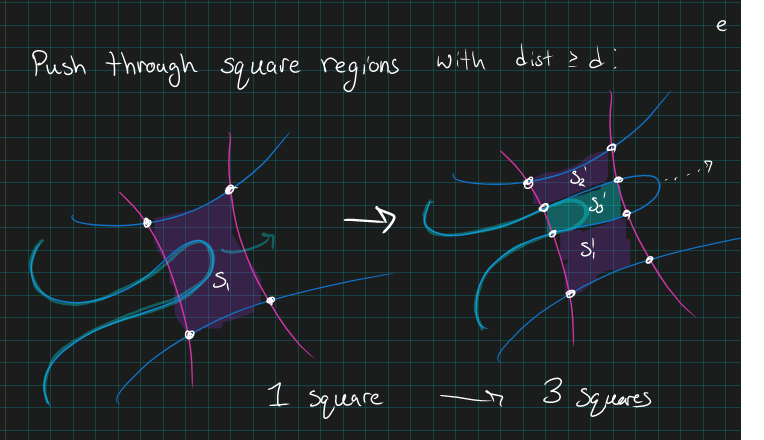 e
Push through square regions with dist ≥ d:
S₁
S₂'
S₀'
S₁'
1 square → 3 squares